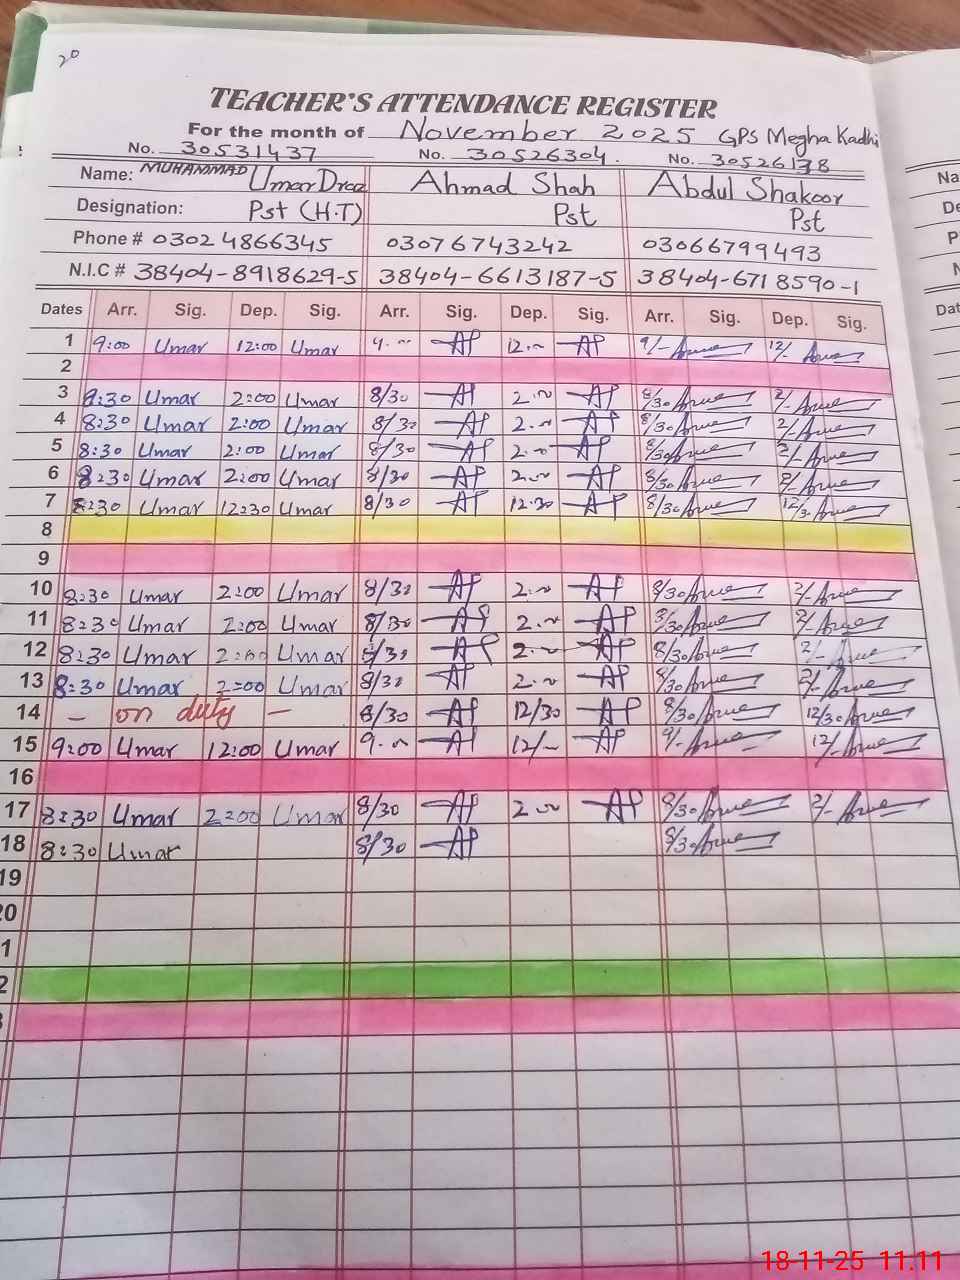 20
TEACHER'S ATTENDANCE REGISTER
For the month of November 2025 GPS Megha Kadhi
No. 30531437 No. 30526304. No. 30526138
Name: MUHAMMAD Umar Draz Ahmad Shah Abdul Shakoor
Designation: Pst (H.T) Pst Pst
Phone # 03024866345 03076743242 03066799493
N.I.C # 38404-8918629-5 38404-6613187-5 38404-6718590-1
Dates Arr. Sig. Dep. Sig. Arr. Sig. Dep. Sig. Arr. Sig. Dep. Sig.
1 9:00 Umar 12:00 Umar 9.00 12.00 9/- 12/-
2
3 8:30 Umar 2:00 Umar 8/30 2.00 8/30 2/-
4 8:30 Umar 2:00 Umar 8/30 2.00 8/30 2/-
5 8:30 Umar 2:00 Umar 8/30 2.00 8/30 2/-
6 8:30 Umar 2:00 Umar 8/30 2.00 8/30 2/-
7 8:30 Umar 12:30 Umar 8/30 12.30 8/30 12/30
8
9
10 8:30 Umar 2:00 Umar 8/30 2.00 8/30 2/-
11 8:30 Umar 2:00 Umar 8/30 2.00 8/30 2/-
12 8:30 Umar 2:00 Umar 8/30 2.00 8/30 2/-
13 8:30 Umar 2:00 Umar 8/30 2.00 8/30 2/-
14 - on duty - 8/30 12/30 8/30 12/30
15 9:00 Umar 12:00 Umar 9.00 12/- 9/- 12/-
16
17 8:30 Umar 2:00 Umar 8/30 2.00 8/30 2/-
18 8:30 Umar 8/30 8/30
19
20
1
2
3
18-11-25 11.11